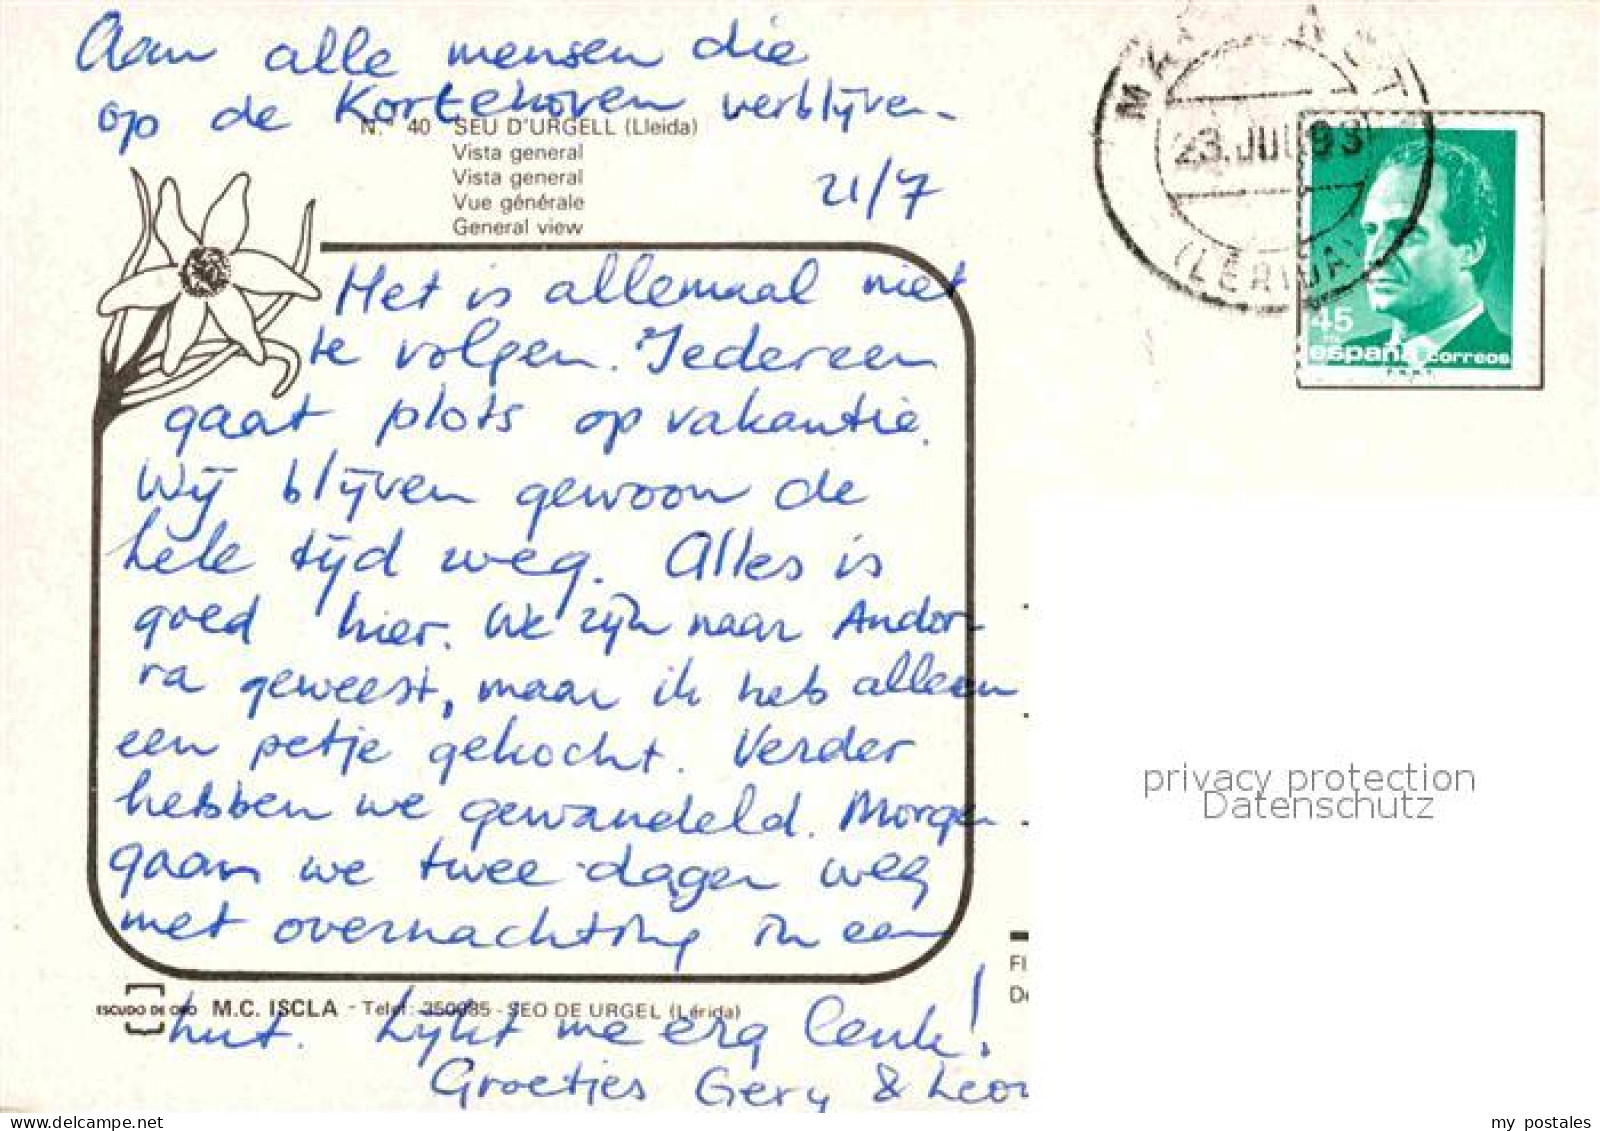 Aan alle mensen die
op de Kortehoven verblijven.
N.° 40 SEU D'URGELL (Lleida)
Vista general
Vista general
Vue générale
General view
21/7
23.JUL.93
(LERIDA)
45
PTA
españa correos
F.N.M.T.
Het is allemaal niet
te volgen. Iedereen
gaat plots op vakantie.
Wij blijven gewoon de
hele tijd weg. Alles is
goed hier. We zijn naar Andor-
ra geweest, maar ik heb alleen
een petje gekocht. Verder
hebben we gewandeld. Morgen
gaan we twee dagen weg
met overnachting in een
hut. Lijkt me erg leuk!
ESCUDO DE ORO M.C. ISCLA - Telef: 350085 - SEO DE URGEL (Lérida)
Groetjes Gery & Leon
FI
De
privacy protection
Datenschutz
delcampe.net
my_postales